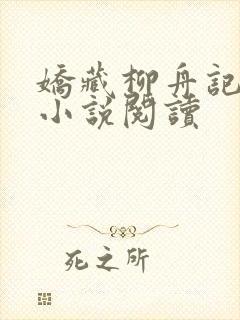 嬌藏柳舟記
小說閱讀
死之所